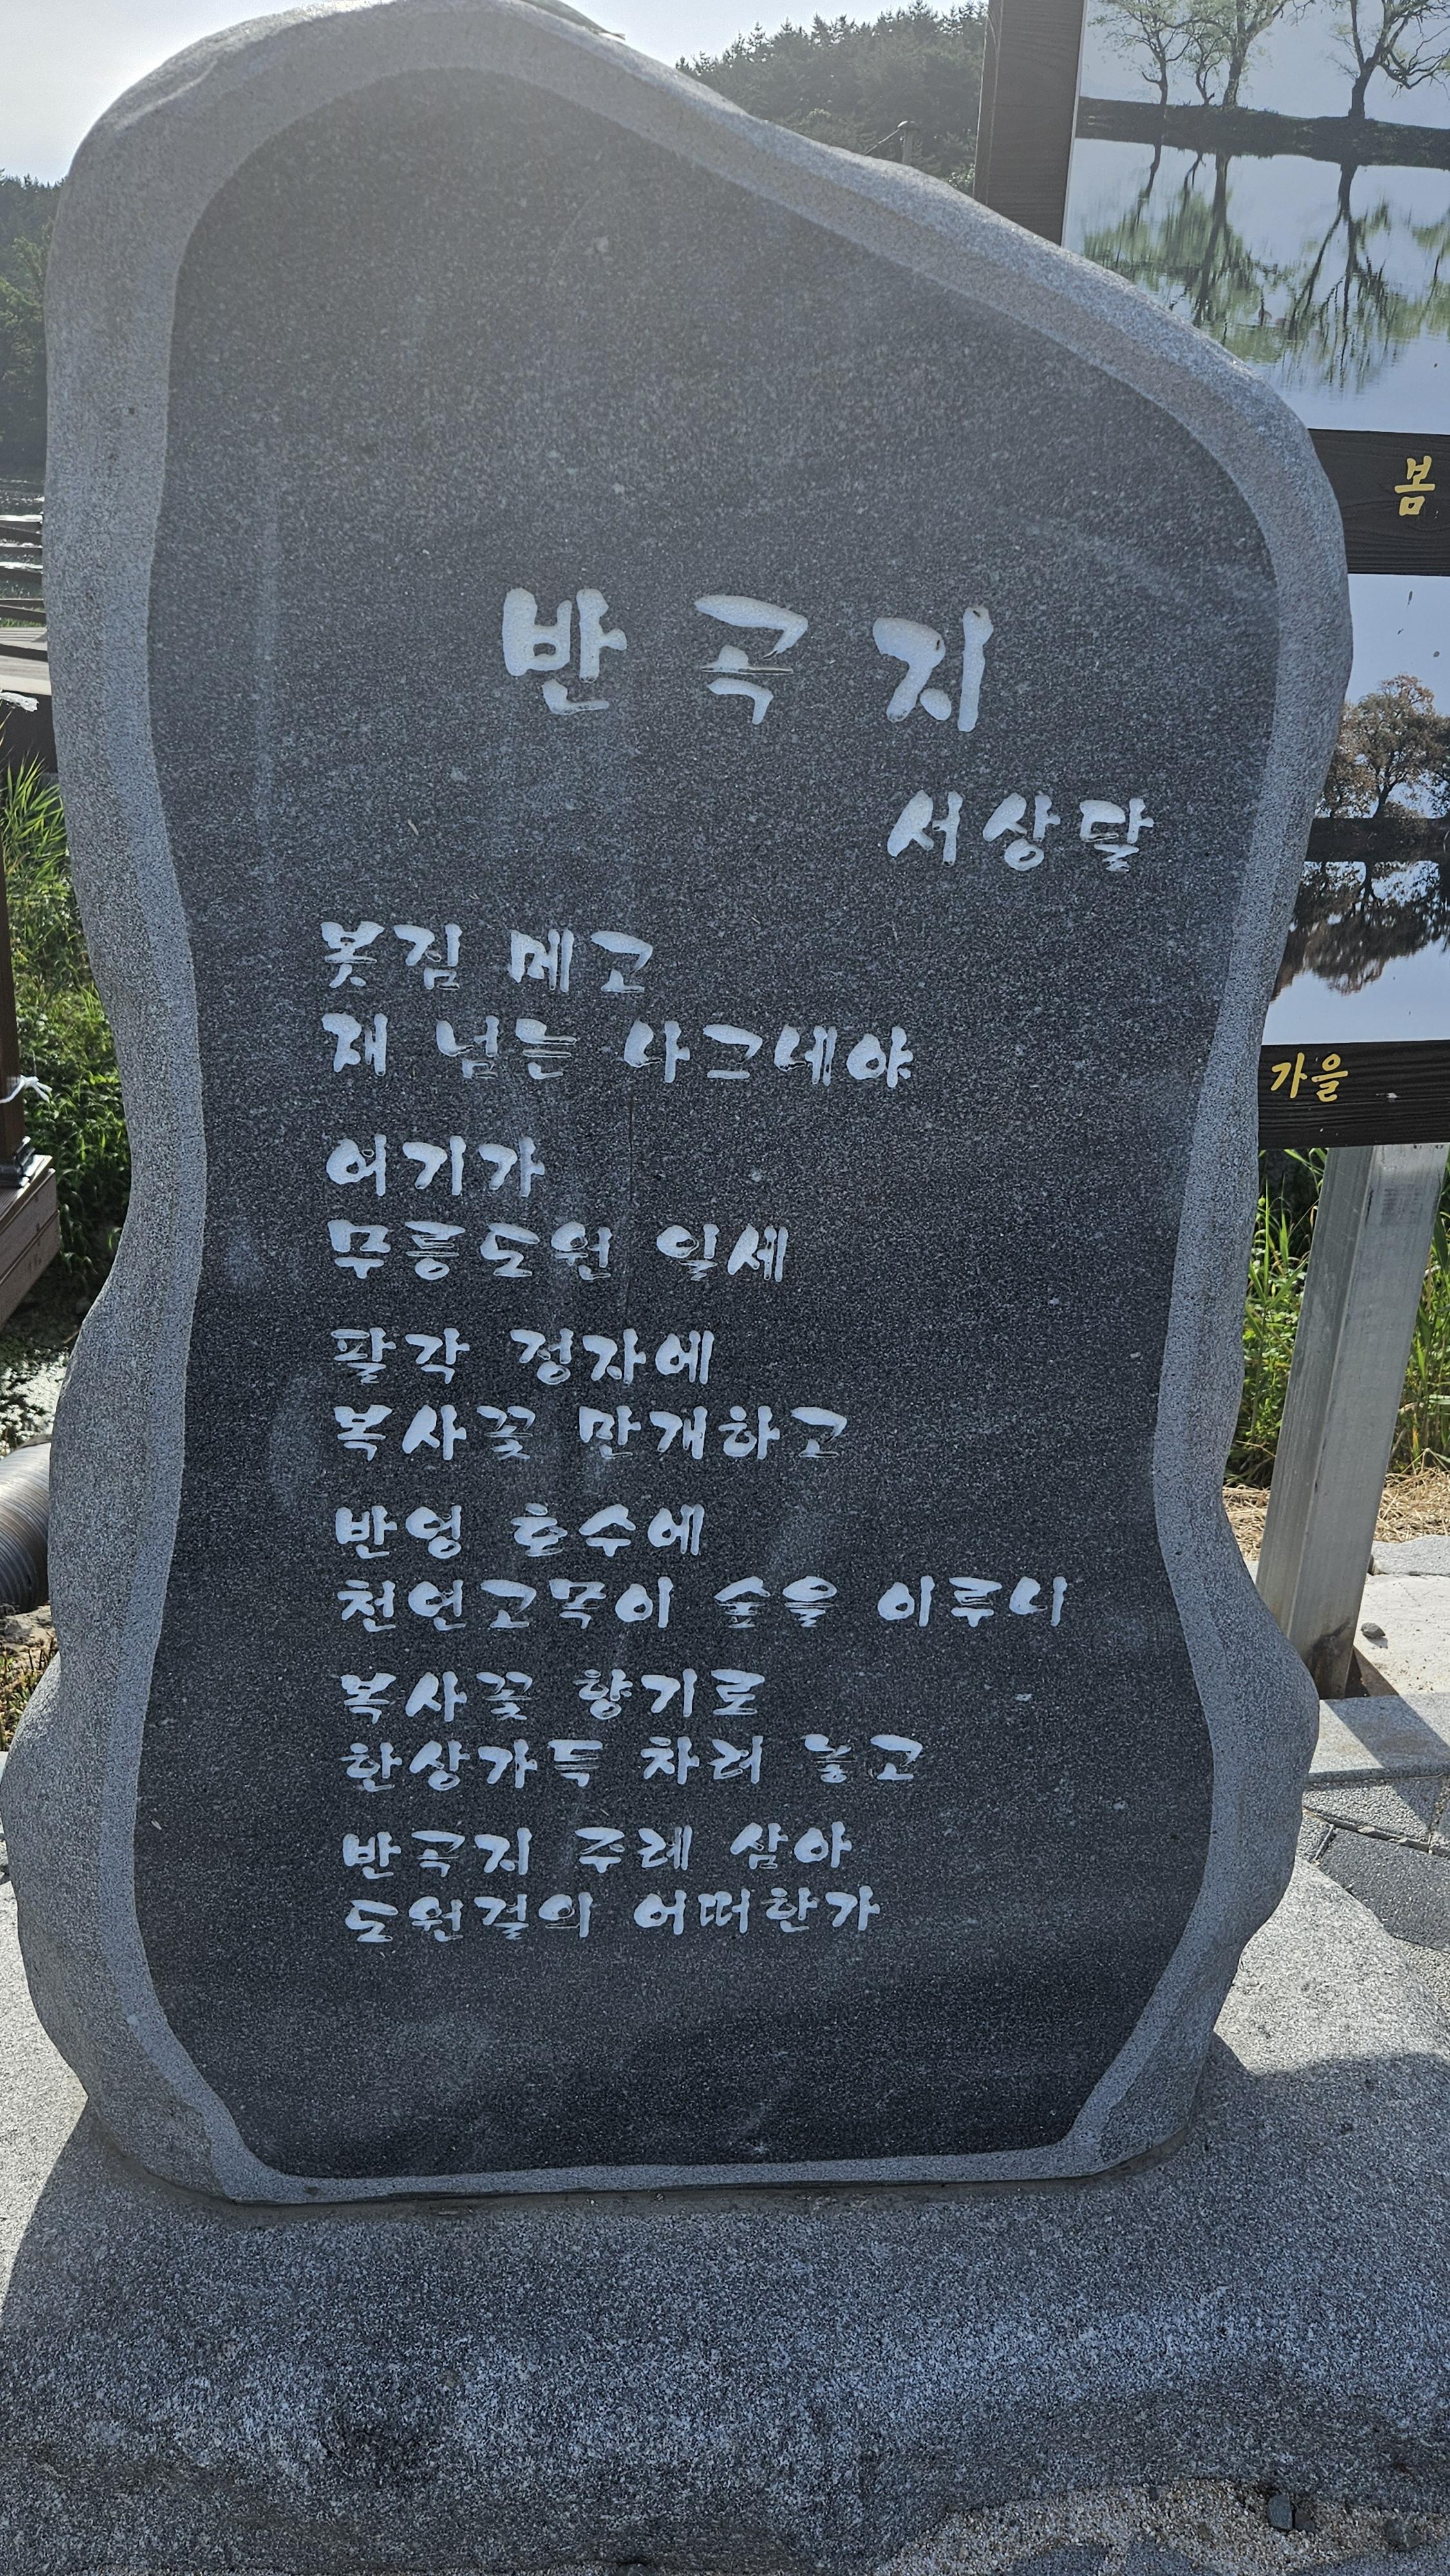 반곡지
서상달
봇짐 메고
재 넘는 나그네야
여기가
무릉도원 일세
팔각 정자에
복사꽃 만개하고
반영 호수에
천연고목이 숲을 이루니
복사꽃 향기로
한상가득 차려 놓고
반곡지 주례 삼아
도원결의 어떠한가
봄
가을